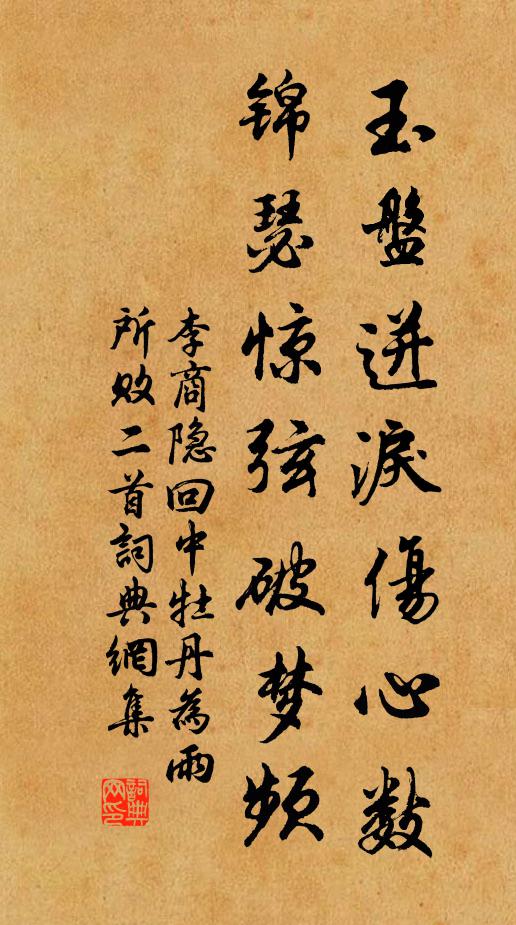 玉盤迸淚傷心數
锦瑟惊弦破梦频
李商隐回中牡丹為雨
所败二首詞典網集
詞典
网印